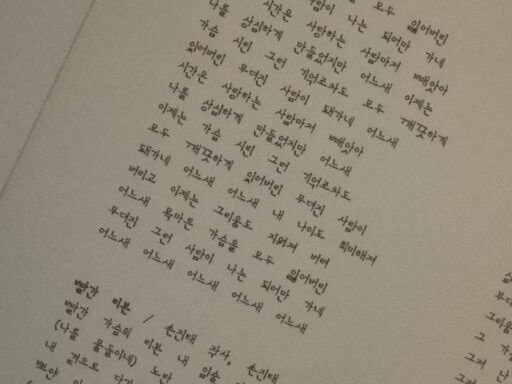 모두 잊어버린
사람이 나는 되어만 가네
나를 시간은 사랑하는 사람마저 빼앗아
가슴 상심하게 만들었지만 어느새 이제는
잊어버린 시린 그런 기억조차도 모두 깨끗하게
시간은 무뎌진 사람이 돼가네 어느새
나를 사랑하는 사람마저 빼앗아
이제는 상심하게 만들었지만 어느새
모두 가슴 시린 그런 기억조차도
돼가네 깨끗하게 잊어버린 무뎌진 사람이
버리고 어느새 어느새 내 나이도 희미해져
어느새 이제는 그리움도 지워져 버려
무뎌진 목마른 가슴을 모두 잊어버린
어느새 그런 사람이 나는 되어만 가네
어느새 어느새 어느새 어느새
빨간 리본 / 손진태 작사, 손진태
빨간 가슴의 리본 내 입술
(나를 물들이네) 노란
내 것으로
뽀얀
그리움
그 가
그저 난
그저